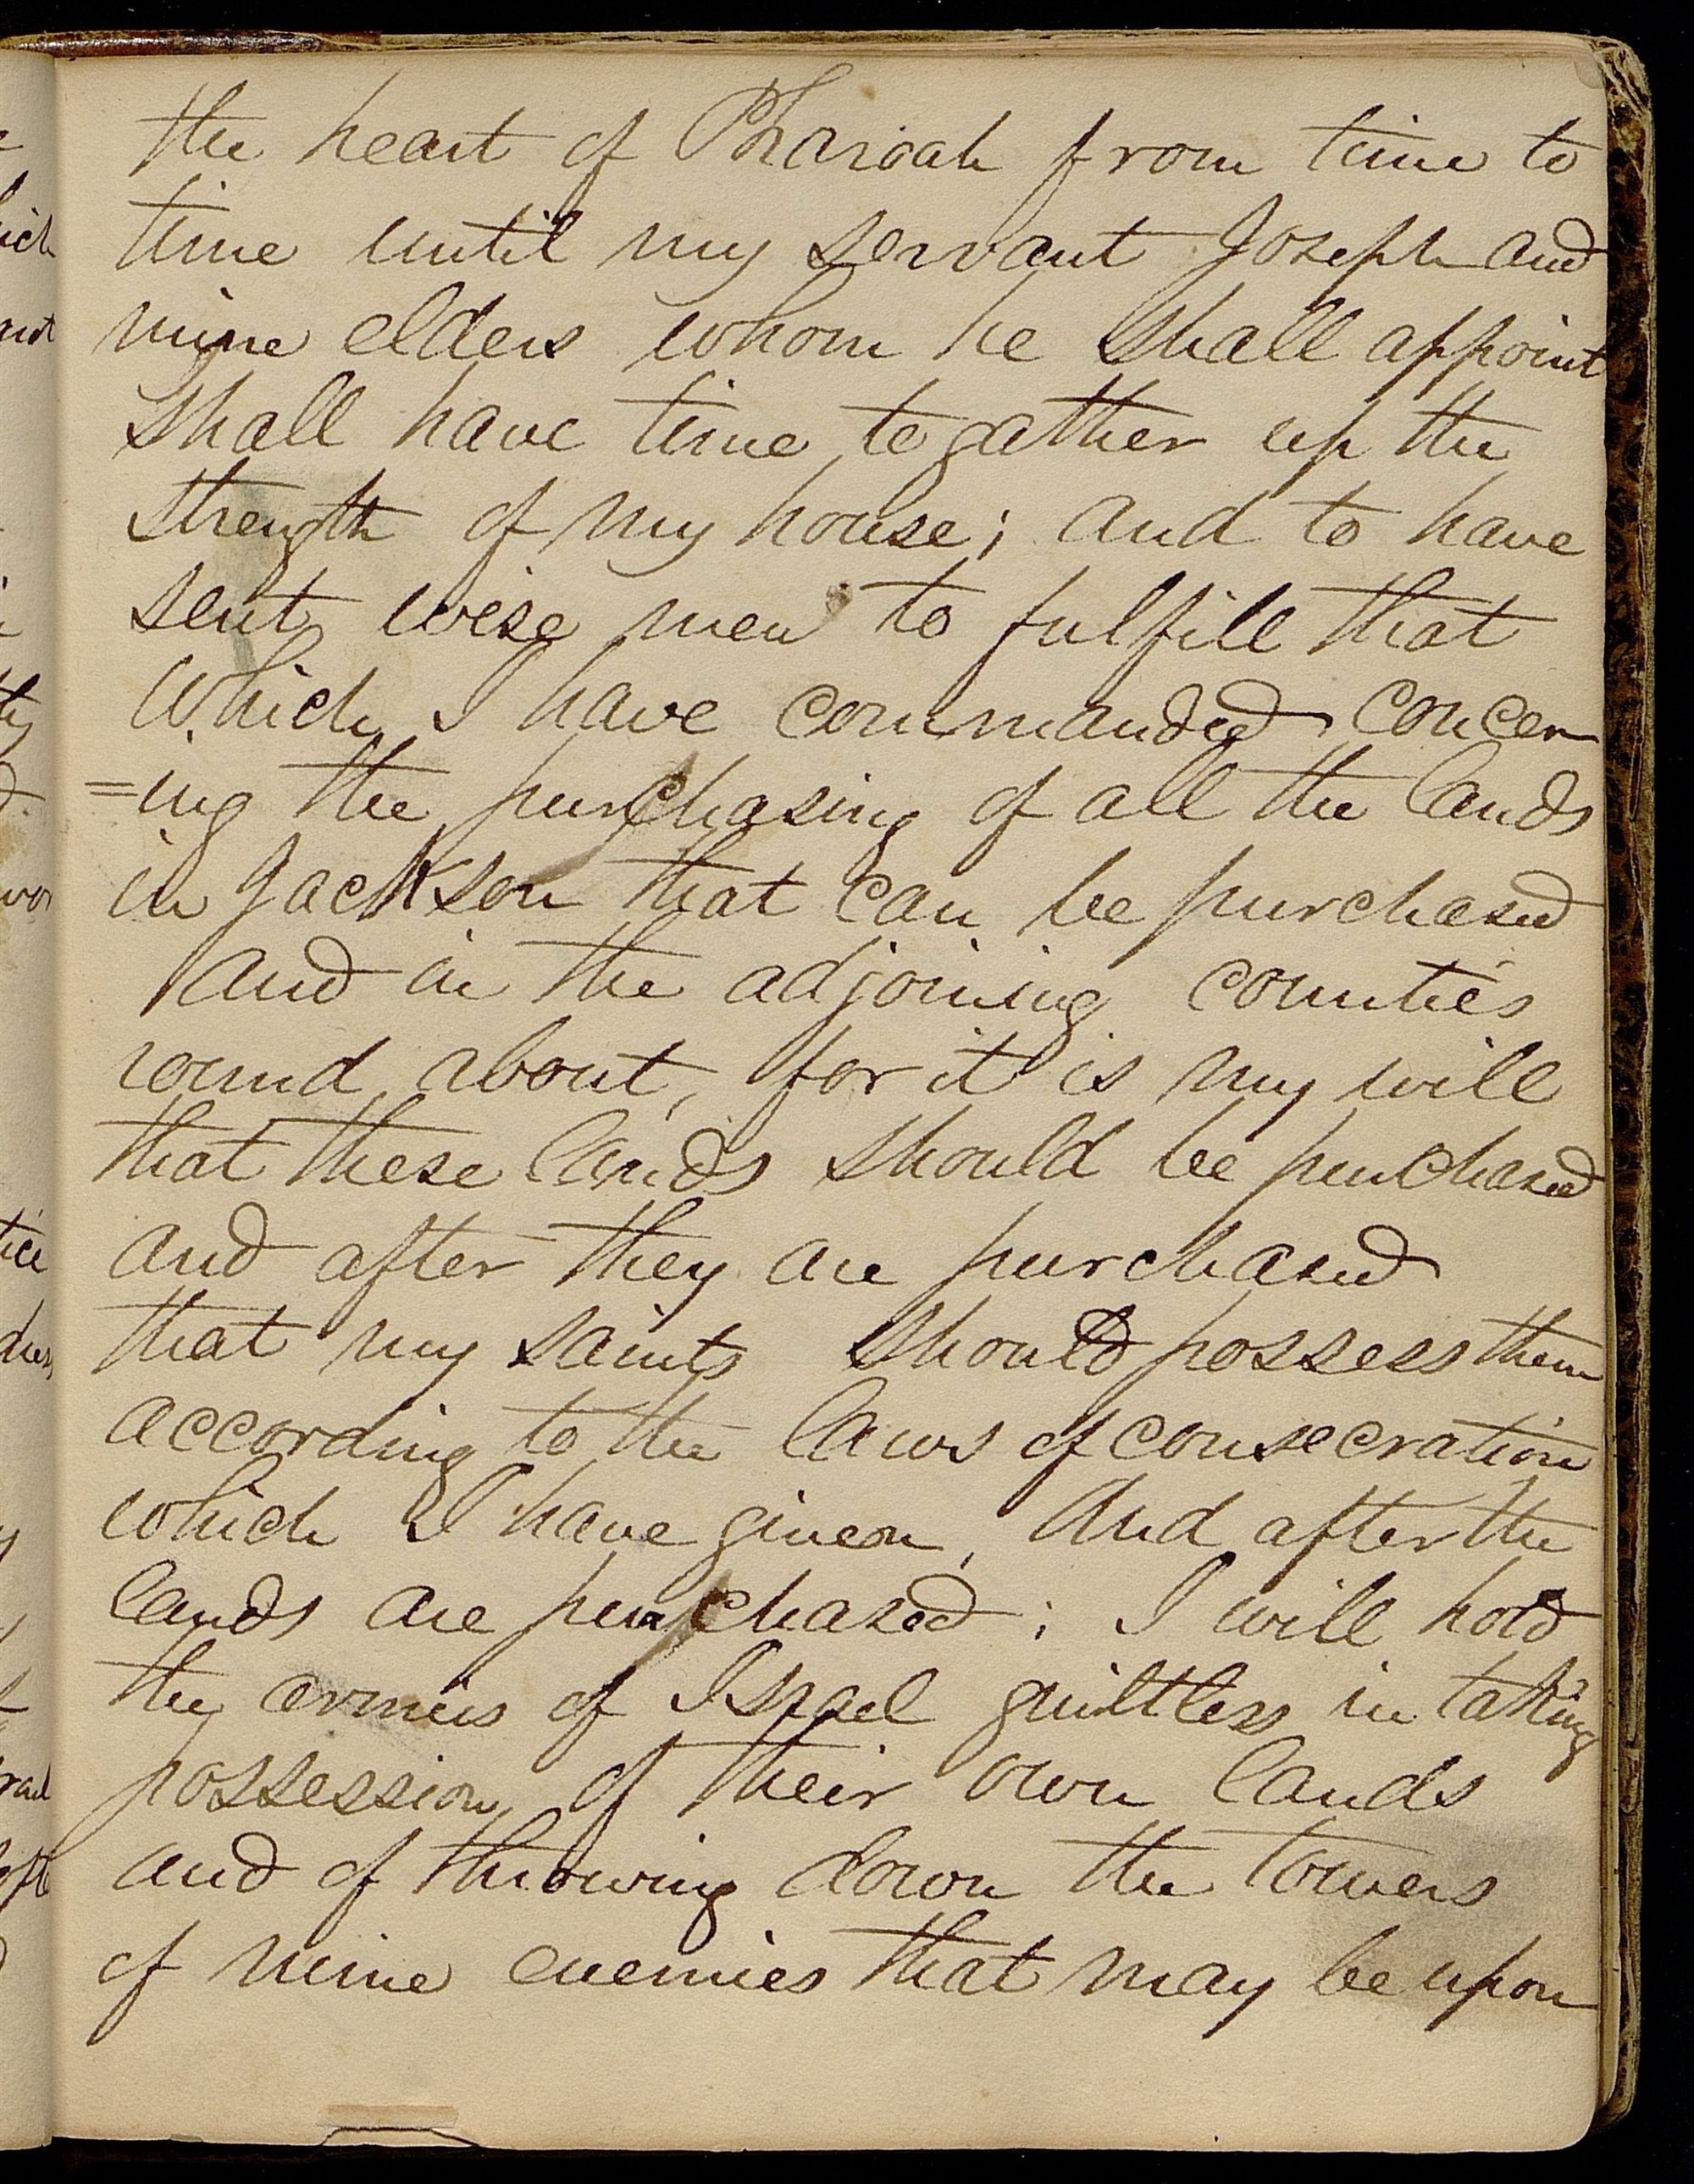 the heart of Pharoah from time to
time until my servant Joseph and
mine elders whom he shall appoint
shall have time to gather up the
strength of my house; and to have
sent wise men to fulfill that
which I have commanded concern
=ing the purchasing of all the lands
in Jackson that can be purchased
and in the adjoining counties
round about, for it is my will
that these lands should be purchased
and after they are purchased
that my saints should possess them
according to the laws of consecration
which I have given, And after the
lands are purchased; I will hold
the armies of Israel guiltless in taking
possession of their own lands
and of throwing down the towers
of mine enemies that may be upon